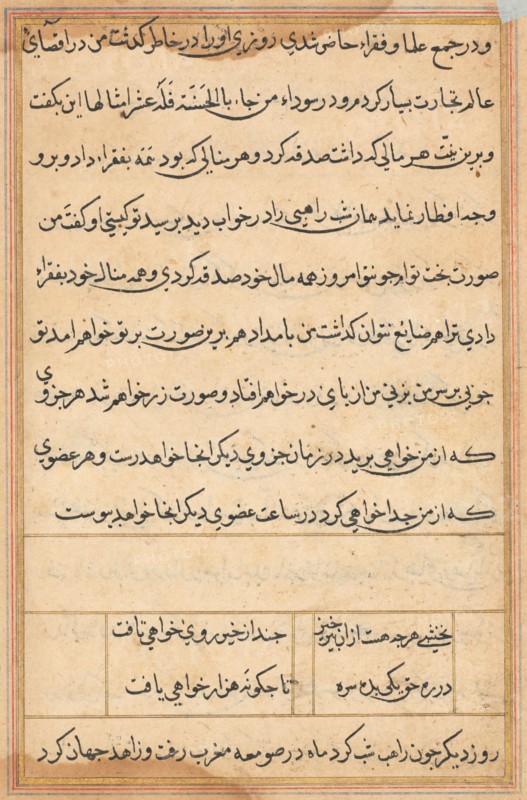 ودر جمع علما و فقراء حاضر شدي روزي اورا در خاطر كذشت من در اقصاي
عالم تجارت بسيار كردم و در سوداء من جاء بالحسنة فله عشر امثالها اين بكفت
و برين نيّت هر مالي كه داشت صدقه كرد و هر منالي كه بود تمه بفقراء داد و برو
وجه افطار نماند همان شب راهبي را در خواب ديد پرسيد تو كيستي او كفت من
صورت بخت توام جو تو امروز همه مال خود صدقه كردي و همه منال خود بفقراء
دادي ترا هم ضايع نتوان كذاشت من بامداد هم برين صورت بر تو خواهم امد تو
جوبي بر سر من بزني من از باي در خواهم افتاد و صورت زر خواهم شد هر جزوي
كه از من خواهي بريد در زمان جزوي ديكر انجا خواهد رست و هر عضوي
كه از من جدا خواهي كرد در ساعت عضوي ديكر انجا خواهد بيوست
نخشبي هر جه هست از ان بر خيز جند از خير روي خواهي تافت
در ره حق يكي بده سره تا جكونه هزار خواهي يافت
روز ديكر جون راهب شب كرد ماه در صومعه مغرب رفت و زاهد جهان كرد